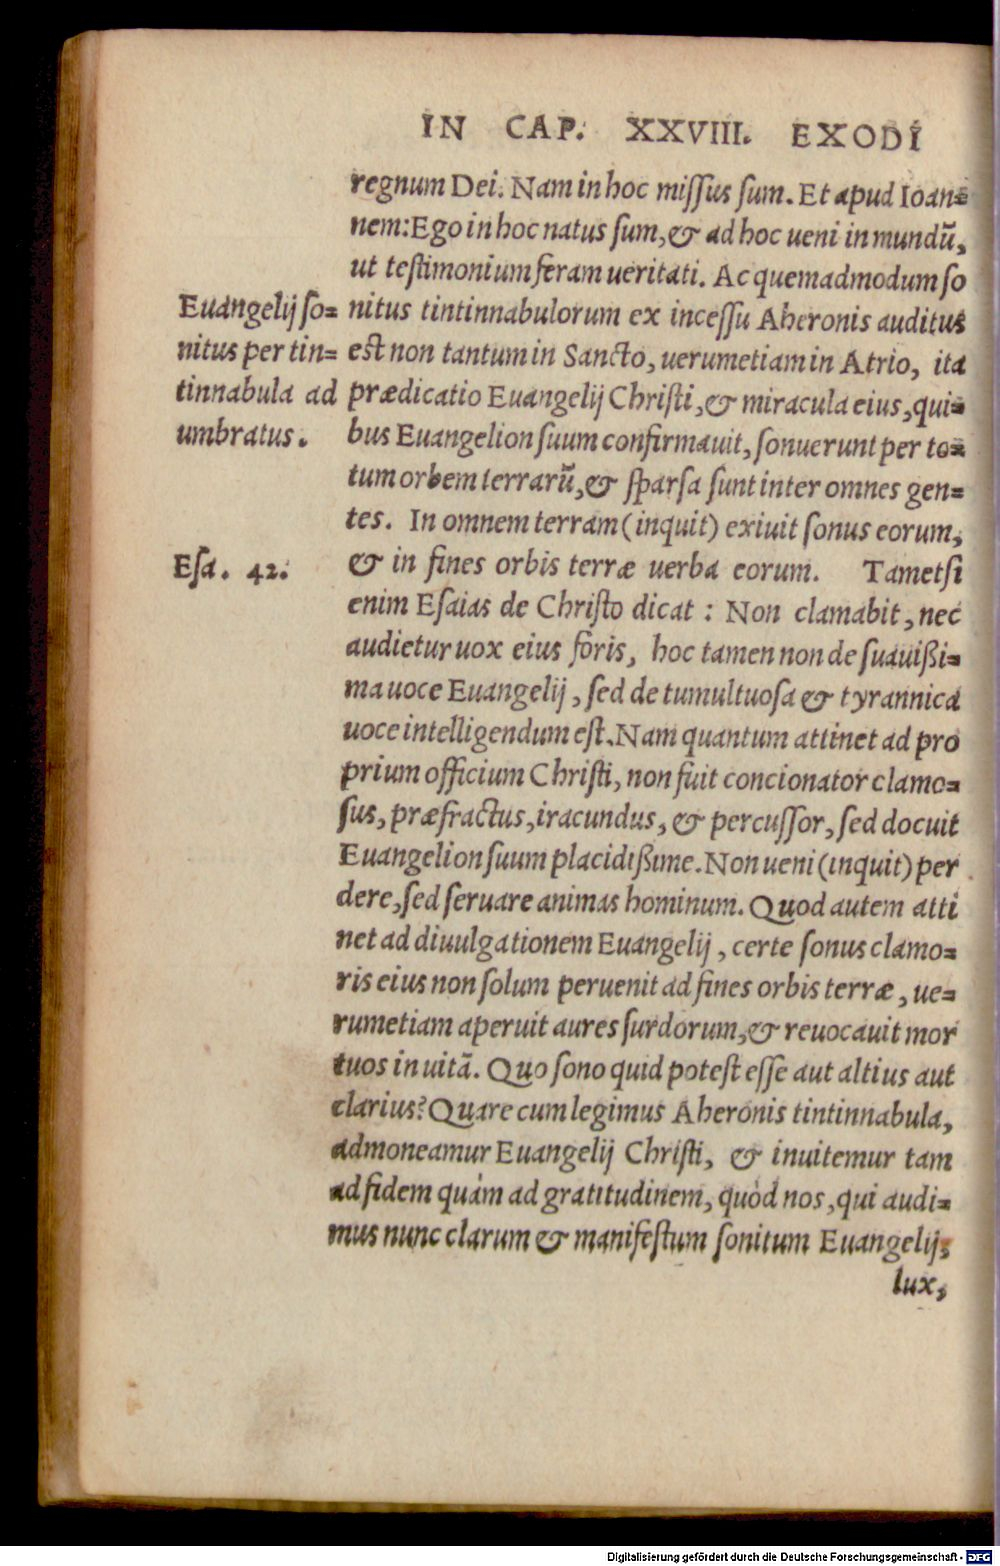 IN CAP. XXVIII. EXODI
regnum Dei. Nam in hoc missus sum. Et apud Ioan=
nem: Ego in hoc natus sum, & ad hoc ueni in mundũ,
ut testimonium feram ueritati. Ac quemadmodum so
nitus tintinnabulorum ex incessu Aheronis auditus
est non tantum in Sancto, uerumetiam in Atrio, ita
prædicatio Euangelij Christi, & miracula eius, qui=
bus Euangelion suum confirmauit, sonuerunt per to=
tum orbem terrarũ, & sparsa sunt inter omnes gen=
tes. In omnem terram (inquit) exiuit sonus eorum,
& in fines orbis terræ uerba eorum. Tametsi
enim Esaias de Christo dicat : Non clamabit, nec
audietur uox eius foris, hoc tamen non de suauißi=
ma uoce Euangelij, sed de tumultuosa & tyrannica
uoce intelligendum est. Nam quantum attinet ad pro
prium officium Christi, non fuit concionator clamo=
sus, præfractus, iracundus, & percussor, sed docuit
Euangelion suum placidißime. Non ueni (inquit) per
dere, sed seruare animas hominum. Quod autem atti
net ad diuulgationem Euangelij, certe sonus clamo=
ris eius non solum peruenit ad fines orbis terræ, ue=
rumetiam aperuit aures surdorum, & reuocauit mor
tuos in uitã. Quo sono quid potest esse aut altius aut
clarius? Quare cum legimus Aheronis tintinnabula,
admoneamur Euangelij Christi, & inuitemur tam
ad fidem quàm ad gratitudinem, quòd nos, qui audi=
mus nunc clarum & manifestum sonitum Euangelij,
lux,
Euangelij so=
nitus per tin=
tinnabula ad
umbratus.
Esa. 42.
Digitalisierung gefördert durch die Deutsche Forschungsgemeinschaft - DFG